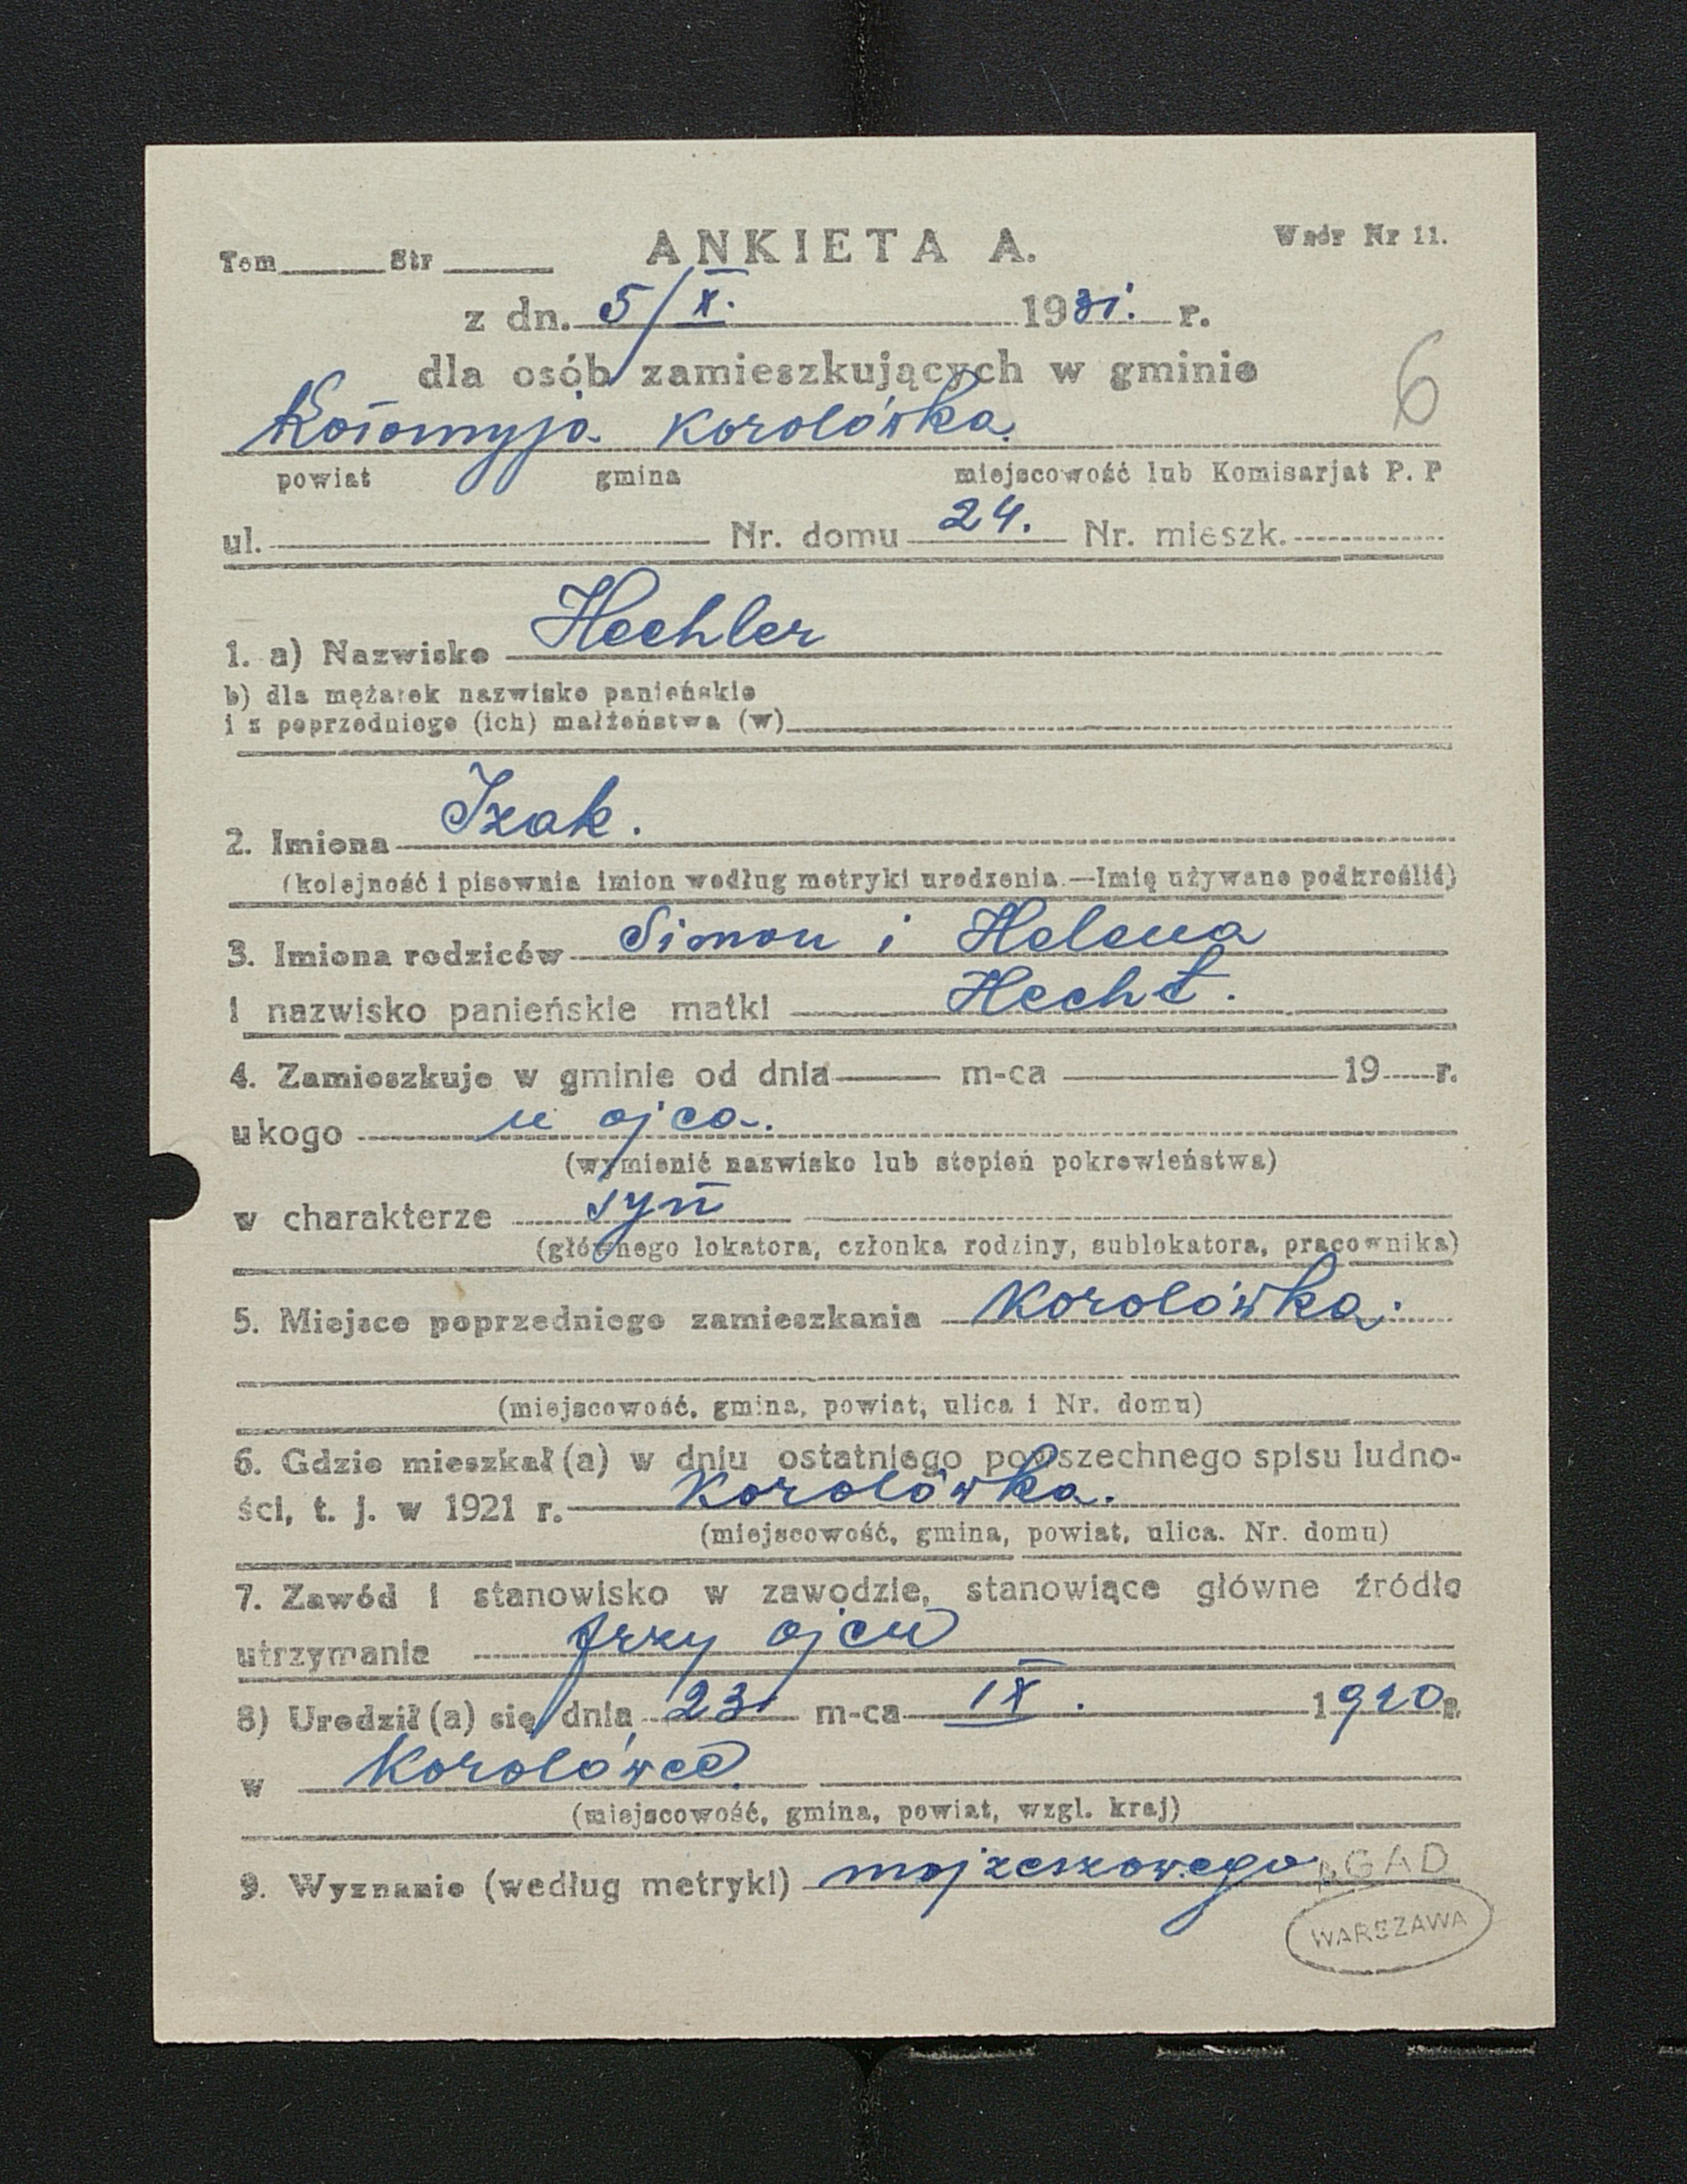 Tom Str ANKIETA A. Wzór Nr 11.
z dn. 5/X. 1931. r.
dla osób zamieszkujących w gminie
6
Kołomyja Korolówka.
powiat gmina miejscowość lub Komisarjat P. P
ul. Nr. domu 24. Nr. mieszk.
1. a) Nazwisko Hechler
b) dla mężatek nazwisko panieńskie
i z poprzedniego (ich) małżeństwa (w)
2. Imiona Izak.
(kolejność i pisownia imion według metryki urodzenia.—Imię używane podkreślić)
3. Imiona rodziców Simon i Helena
i nazwisko panieńskie matki Hecht.
4. Zamieszkuje w gminie od dnia m-ca 19 r.
u kogo u ojca.
(wymienić nazwisko lub stopień pokrewieństwa)
w charakterze syn
(głównego lokatora, członka rodziny, sublokatora, pracownika)
5. Miejsce poprzedniego zamieszkania Korolówka.
(miejscowość, gmina, powiat, ulica i Nr. domu)
6. Gdzie mieszkał (a) w dniu ostatniego powszechnego spisu ludno-
ści, t. j. w 1921 r. Korolówka.
(miejscowość, gmina, powiat, ulica. Nr. domu)
7. Zawód i stanowisko w zawodzie, stanowiące główne źródło
utrzymania przy ojcu
8) Urodził (a) się dnia 23 m-ca IX. 1910 r.
w Korolówce
(miejscowość, gmina, powiat, wzgl. kraj)
9. Wyznanie (według metryki) mojżeszowego
AGAD
WARSZAWA